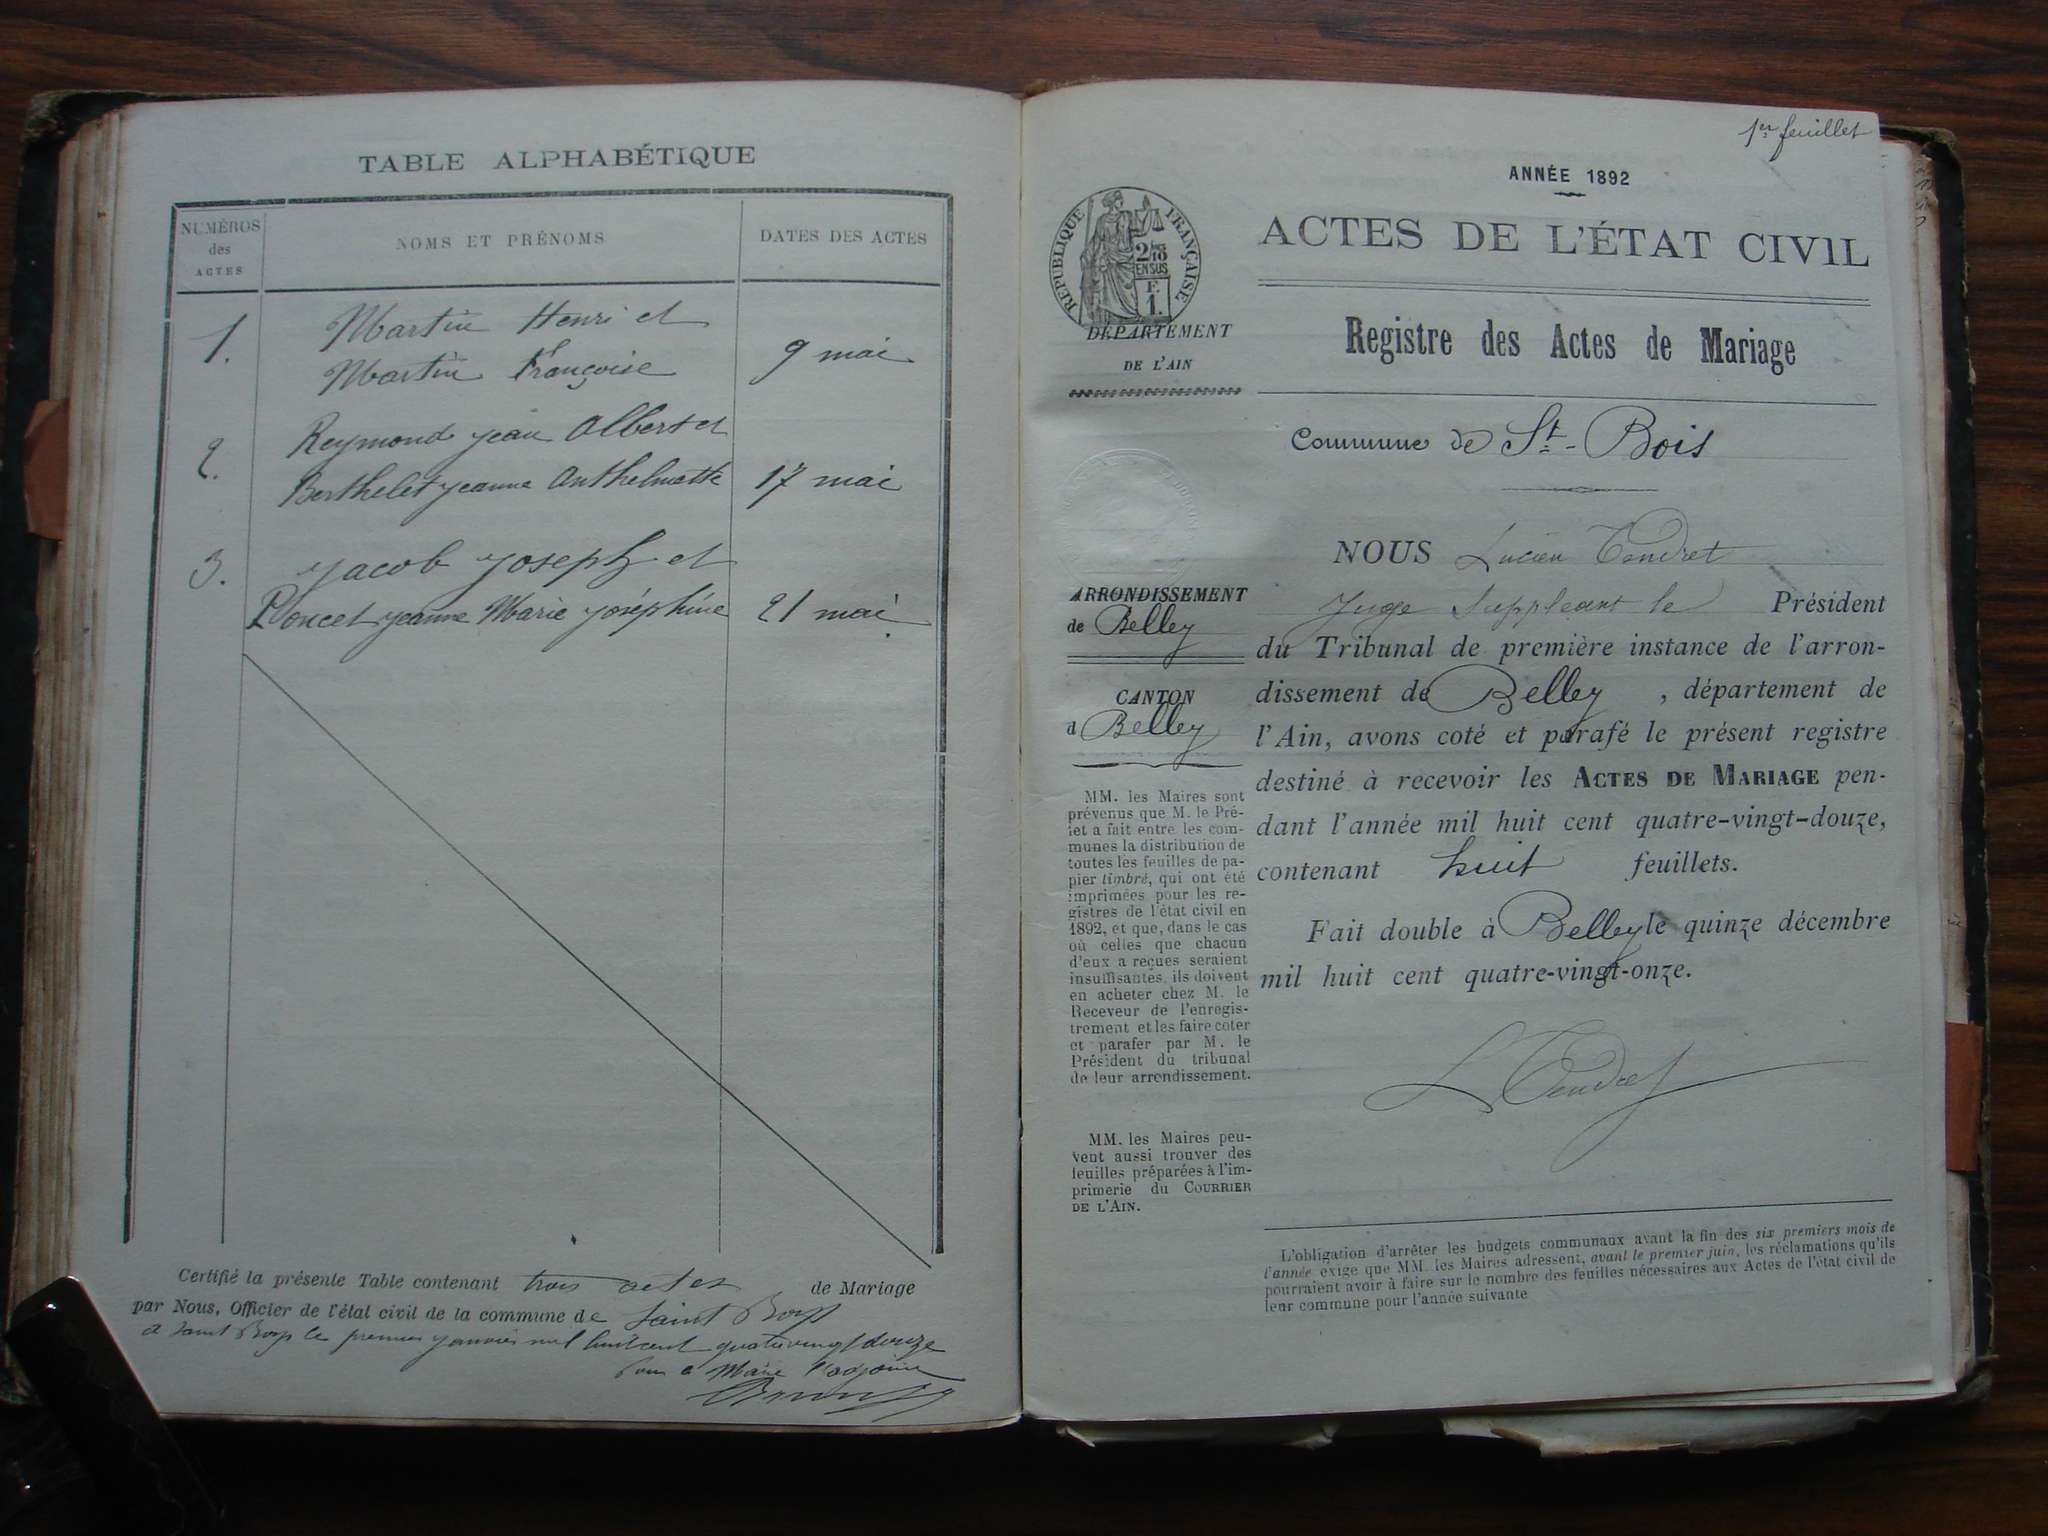 TABLE ALPHABÉTIQUE
NUMÉROS
des
ACTES
NOMS ET PRÉNOMS
DATES DES ACTES
1.
Martin Henri et
Martin Françoise
9 mai
2.
Reymond Jean Albert et
Berthelet Jeanne Anthelmette
17 mai
3.
Jacob Joseph et
Poncet Jeanne Marie Joséphine
21 mai
Certifié la présente Table contenant trois actes de Mariage
par Nous, Officier de l'état civil de la commune de Saint Boys
a Saint Boys le premier janvier mil huit cent quatrevingt douze
Pour le Maire l'adjoint
1er feuillet
ANNÉE 1892
RÉPUBLIQUE FRANÇAISE
2/10
EN SUS
F.
1.
ACTES DE L'ÉTAT CIVIL
DÉPARTEMENT
DE L'AIN
Registre des Actes de Mariage
Commune de St.-Bois
ARRONDISSEMENT
de Belley
CANTON
d Belley
MM. les Maires sont
prévenus que M. le Pré-
fet a fait entre les com-
munes la distribution de
toutes les feuilles de pa-
pier timbré, qui ont été
imprimées pour les re-
gistres de l'état civil en
1892, et que, dans le cas
où celles que chacun
d'eux a reçues seraient
insuffisantes, ils doivent
en acheter chez M. le
Receveur de l'enregis-
trement et les faire coter
et parafer par M. le
Président du tribunal
de leur arrondissement.
MM. les Maires peu-
vent aussi trouver des
feuilles préparées à l'im-
primerie du COURRIER
DE L'AIN.
NOUS Lucien Tendret
Juge Suppléant le Président
du Tribunal de première instance de l'arron-
dissement de Belley, département de
l'Ain, avons coté et parafé le présent registre
destiné à recevoir les ACTES DE MARIAGE pen-
dant l'année mil huit cent quatre-vingt-douze,
contenant huit feuillets.
Fait double à Belley le quinze décembre
mil huit cent quatre-vingt-onze.
L Tendret
L'obligation d'arrêter les budgets communaux avant la fin des six premiers mois de
l'année exige que MM. les Maires adressent, avant le premier juin, les réclamations qu'ils
pourraient avoir à faire sur le nombre des feuilles nécessaires aux Actes de l'état civil de
leur commune pour l'année suivante